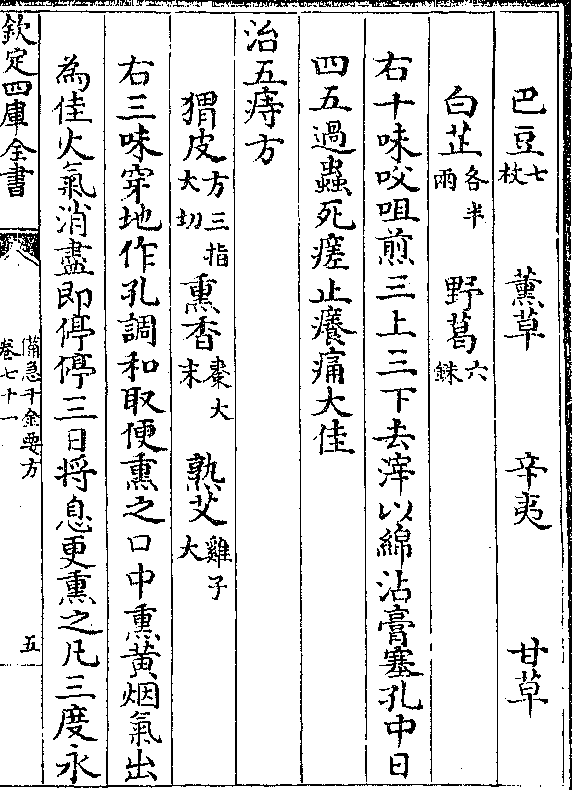 巴豆七枚 薰草 辛夷 甘草
白芷各半兩 野葛六銖
右十味㕮咀煎三上三下去滓以綿沾膏塞孔中日
四五過蟲死瘥止癢痛大佳
治五痔方
猬皮方三指大切 熏香棗大末 熟艾雞子大
右三味穿地作孔調和取便熏之口中熏黄烟氣出
為佳火氣消盡即停停三日将息更熏之凡三度永
欽定四庫全書
備急千金要方
卷七十一
五